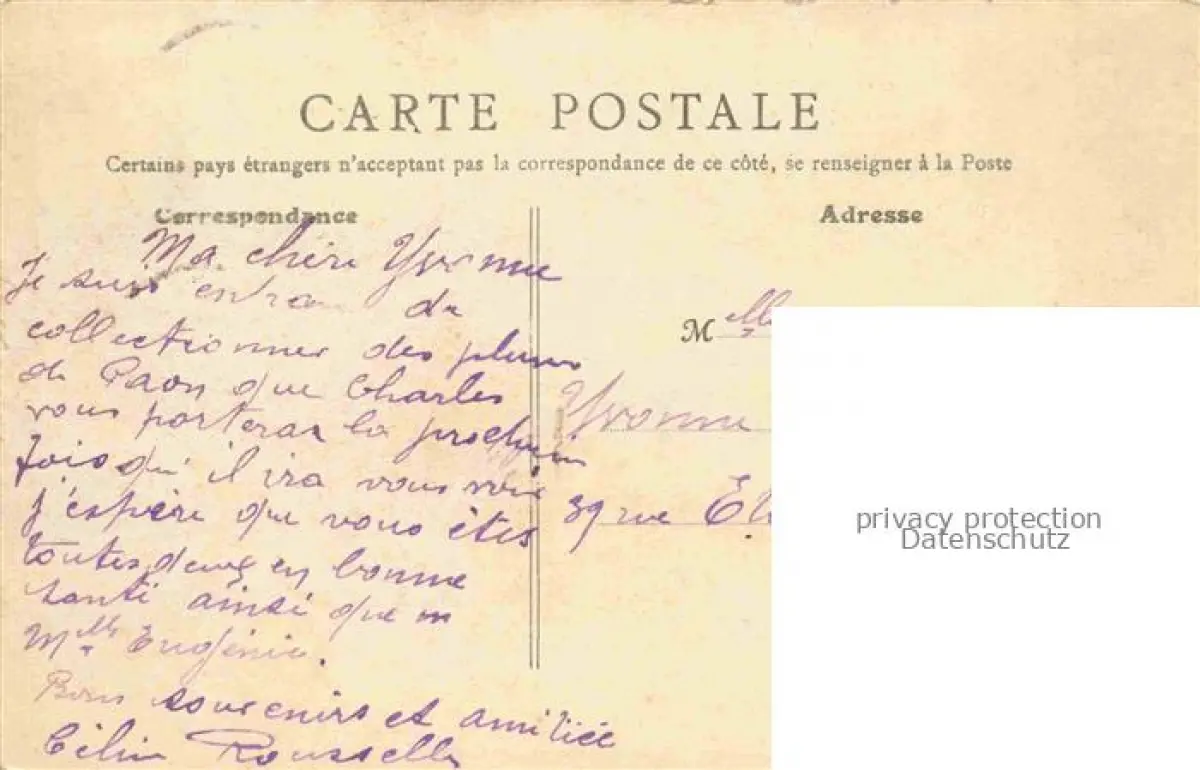 CARTE POSTALE
Certains pays étrangers n'acceptant pas la correspondance de ce côté, se renseigner à la Poste
Correspondance
Adresse
Ma chère Yvonne
Je suis entrain de
collectionner des plumes
de Paon que Charles
vous portera la prochain
fois qu'il ira vous voir
j'espère que vous êtes
toutes deux en bonne
santé ainsi que
Mlle Eugénie.
Bons souvenirs et amitiée
Célina Rousselle
Mlle
Yvonne
39 rue
privacy protection
Datenschutz